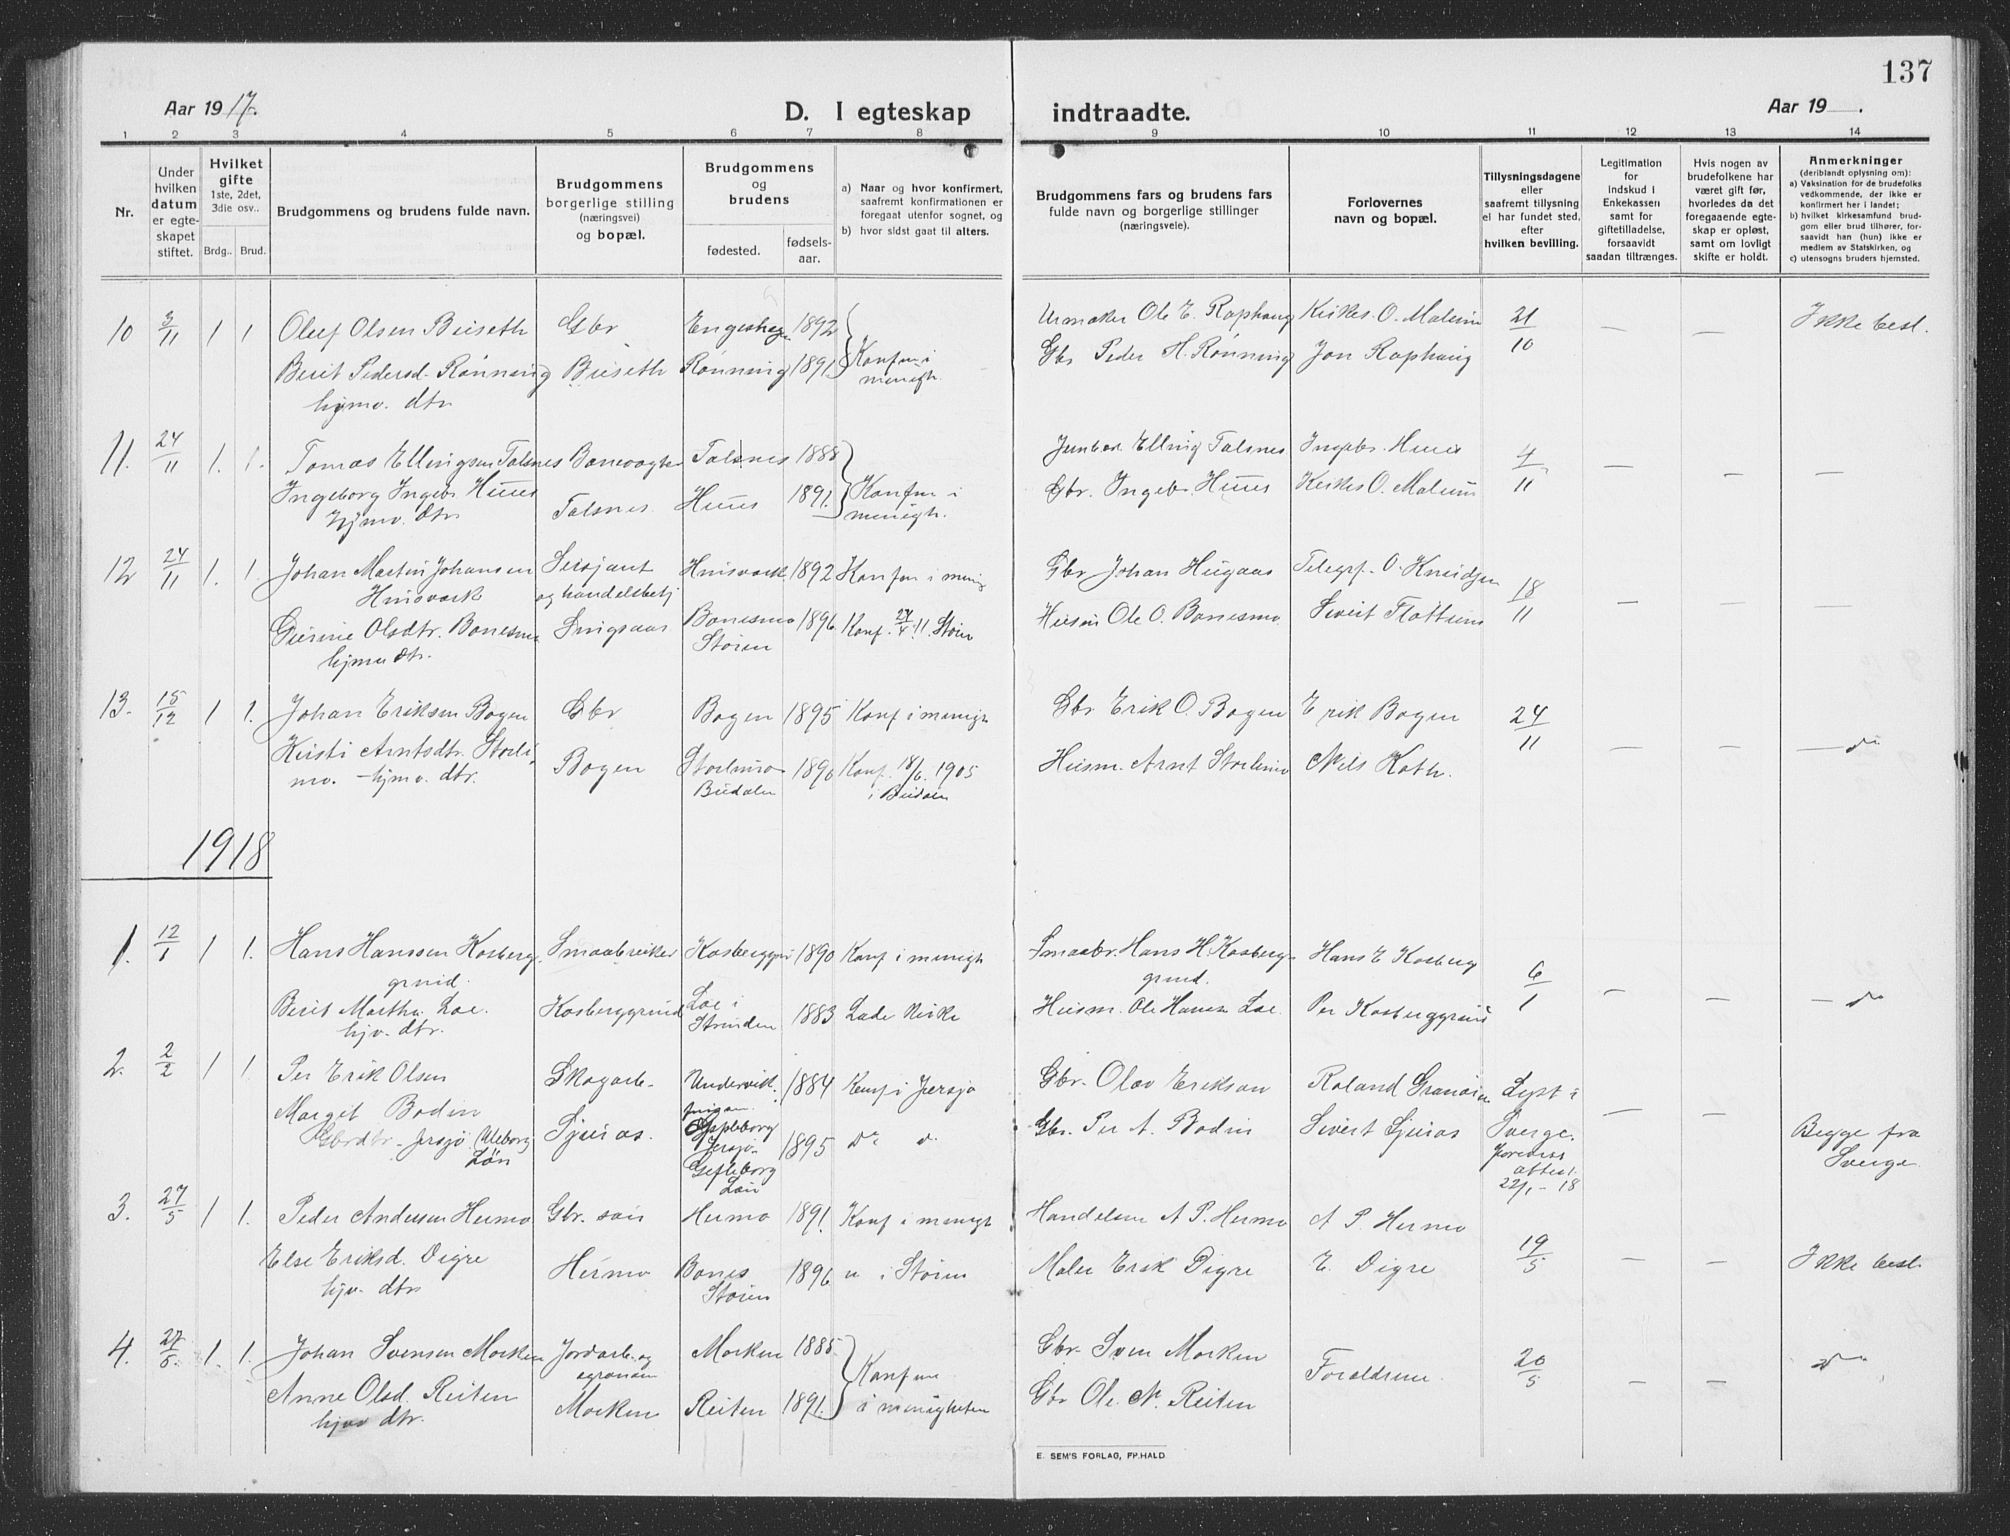 137
Aar 1917.
D. I egteskap
indtraadte.
Aar 19 .
1 2 3 4 5 6 7 8 9 10 11 12 13 14
Nr.
Under
hvilken
datum
er egte-
skapet
stiftet.
Hvilket
gifte
1ste, 2det,
3die osv..
Brdg.. Brud.
Brudgommens og brudens fulde navn.
Brudgommens
borgerlige stilling
(næringsvei)
og bopæl.
Brudgommens
og
brudens
fødested.
fødsels-
aar.
a) Naar og hvor konfirmert,
saafremt konfirmationen er
foregaat utenfor sognet, og
b) hvor sidst gaat til alters.
Brudgommens fars og brudens fars
fulde navn og borgerlige stillinger
(næringsveie).
Forlovernes
navn og bopæl.
Tillysningsdagene
eller
saafremt tillysning
ei har fundet sted,
efter
hvilken bevilling.
Legitimation
for
indskud i
Enkekassen
samt for
giftetilladelse,
forsaavidt
saadan tiltrænges.
Hvis nogen av
brudefolkene har
været gift før,
hvorledes da det
foregaaende egte-
skap er opløst,
samt om lovligt
skifte er holdt.
Anmerkninger
(deriblandt oplysning om):
a) Vaksination for de brudefolks
vedkommende, der ikke er
konfirmert her i landet;
b) hvilket kirkesamfund brud-
gom eller brud tilhører, for-
saavidt han (hun) ikke er
medlem av Statskirken, og
c) utensogns bruders hjemsted.
10 3/11 1 1 Oluf Olsen Buseth Gbr Engeshaug 1892 Urmaker Ole E. Raphaug Kirkes. O. Malum 21/10 — — Ikke besl.
Berit Pedersd. Rønning Buseth Rønning 1891 Konf. i menigh. Gbr Peder H. Rønning Jon Raphaug
hjmv. dtr
11. 24/11 1. 1. Tomas Ellingsen Talsnes Banevogter Talsnes 1888 Elling Talsnes Ingebr. Huus 4/11 — — —
Ingeborg Ingebr. Huus Talsnes. Huus 1891. Konf. i menigh. Gbr. Ingebr. Huus Kirkes O. Malum
Hjmv. dtr
12 24/11 1. 1. Johan Martin Johansen Sersjant Husvark 1892 Konf. i menig Gbr Johan Hugaas Telegrf. O. Knudsen 18/11 — — —
Husvark og handelsbetj
Gurine Olsdtr. Bonesmo Singsaas Bonesmo 1896 Konf. 27/4 11. Støren Husm Ole O. Bonesmo. Sivert Flottum
hjmv dtr. Støren
13. 15/12 1 1. Johan Eriksen Bogen Gbr Bogen 1895 Konf i menigh Gbr Erik O. Bogen Erik Bogen 24/11 — — — do
Kirsti Arntsdtr. Storli- Bogen Storlimo 1890 Konf. 18/6. 1905 Husm. Arnt Storlimo Nils Koth.
mo. – hjmv. dtr. Budalen i Budalen
1918
1. 12/1 1 1. Hans Hanssen Kosberg Smaabruker Kosberggru 1890 Konf i menigh Smaabr. Hans H. Kosberg- Hans E Kosberg 6/1 — — — do
grud. grud.
Berit Martha Loe. Kosberggrud Loe i 1883 Lade Kirke Husm. Ole Hansen Loe. Per Kosberggrud
hjv. dtr. Strinden
2. 2/2 1 1. Per Erik Olsen Skogarb. 1884 Konf i Jersjø Gbr. Olov Erikson Roland Lyst i — —
Margit Bodin Sjuraas. 1895 do d. Gbr. Per A. Bodin Sivert Sjuraas Sverge. Begge fra
Gbrdtr – Jersjø Jersjø Sverge
Län Gefleborg attest
Län 22/1 – 18
3. 27/5 1 1. Peder Andersen Hermo Gbr. søn Hermo 1891 Konf i menigh Handelsm A P. Hermo A P. Hermo 19/5 — — Ikke besl.
Else Eriksd. Digre Hermo Bones 1896 " i Støren Maler Erik Digre E. Digre
hjv. dtr Støren
4. 27/5. 1. 1. Johan Svensen Morken Jordarb. og Morken 1885 Gbr Sven Morken Foreldrene. 20/5 — — do
agronom
Anne Olsd. Reiten Morken Reiten 1891. Konf. i menigheten Gbr Ole N. Reiten
hjv. dtr.
E. SEM'S FORLAG, FP.HALD